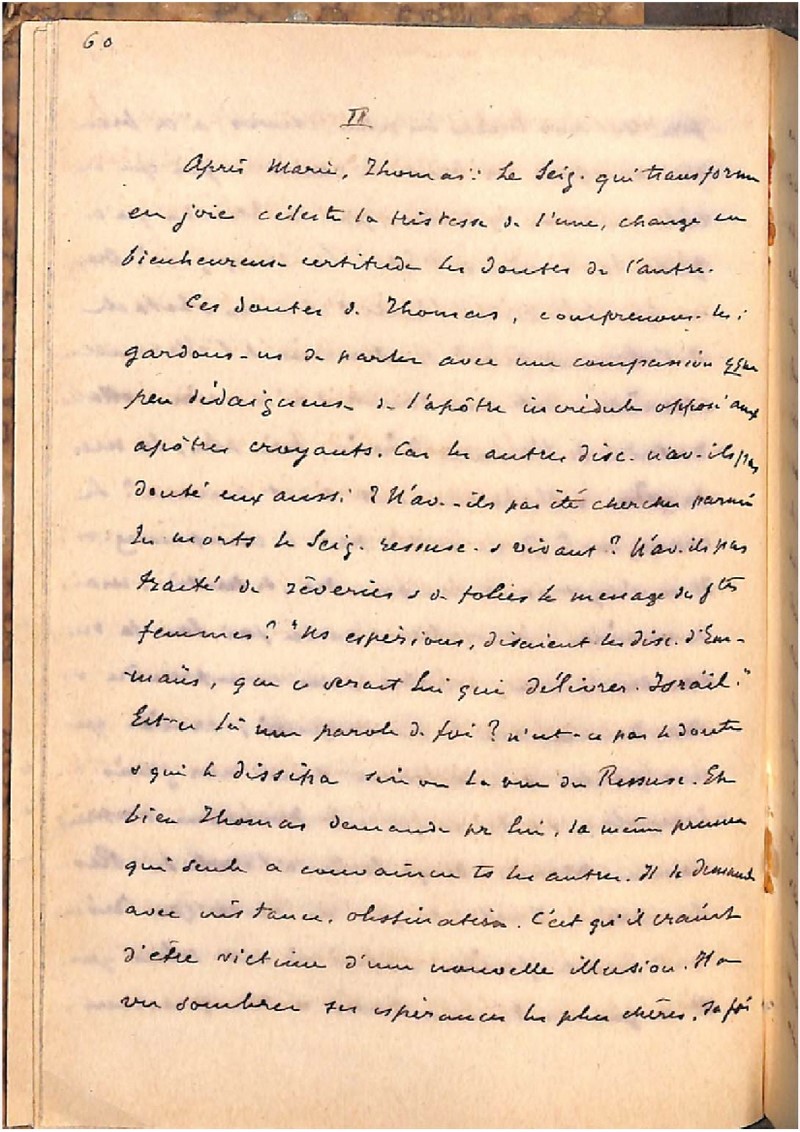 60
II
Après Marie, Thomas : Le Seig. qui transforma
en joie céleste la tristesse de l'une, change en
bienheureuse certitude les doutes de l'autre.
Ces doutes de Thomas, comprenons-les ;
gardons-ns de parler avec une compassion qque
peu dédaigneuse de l'apôtre incrédule opposé aux
apôtres croyants. Car les autres disc. n'av.-ils pas
douté eux aussi ? N'av.-ils pas été chercher parmi
les morts le Seig. ressusc. & vivant ? N'av.ils pas
traité de rêveries & de folies le message des stes
femmes ? "Ns espérions, disaient les disc. d'Em-
maüs, que ce serait lui qui délivrer. Israël."
Est-ce là une parole de foi ? n'est-ce pas le doute
& qui le dissipa sinon la vue du Ressusc. Eh
bien Thomas demande pr lui, la même preuve
qui seule a convaincu ts les autres. Il le demande
avec instance, obstination. C'est qu'il craint
d'être victime d'une nouvelle illusion. Il a
vu sombrer ses espérances les plus chères. Sa foi